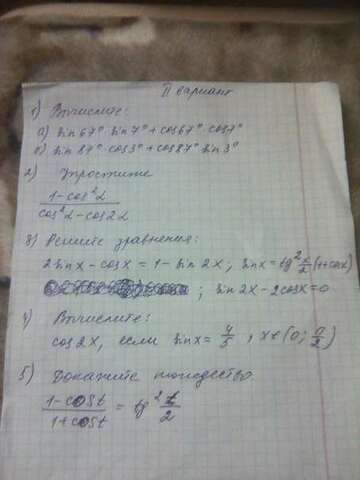 II вариант
1) Вычислите:
а) sin 67° sin 7° + cos 67° · cos 7°
б) sin 87° · cos 3° + cos 87° sin 3°
2) Упростите
1 - cos²α / cos²α - cos 2α
3) Решите уравнения:
2 sin x - cos x = 1 - sin 2x; sin x = tg² x/2 (1 + cos x)
; sin 2x - 2cos x = 0
4) Вычислите:
cos 2x, если sin x = 4/5, x ∈ (0; π/2)
5) Докажите тождество.
1 - cos t / 1 + cos t = tg² t/2